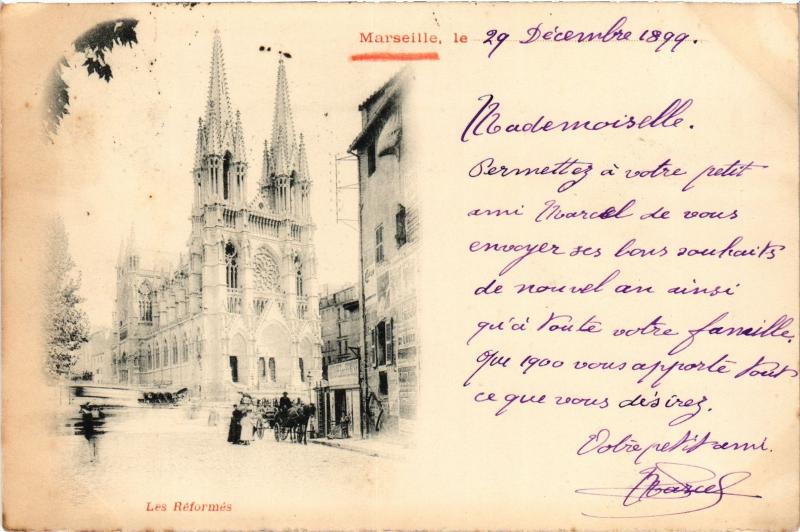 Marseille, le 29 Décembre 1899.
Mademoiselle.
Permettez à votre petit
ami Marcel de vous
envoyer ses bons souhaits
de nouvel an ainsi
qu'à toute votre famille.
Que 1900 vous apporte tout
ce que vous désirez.
Votre petit ami.
Marcel
Les Réformés